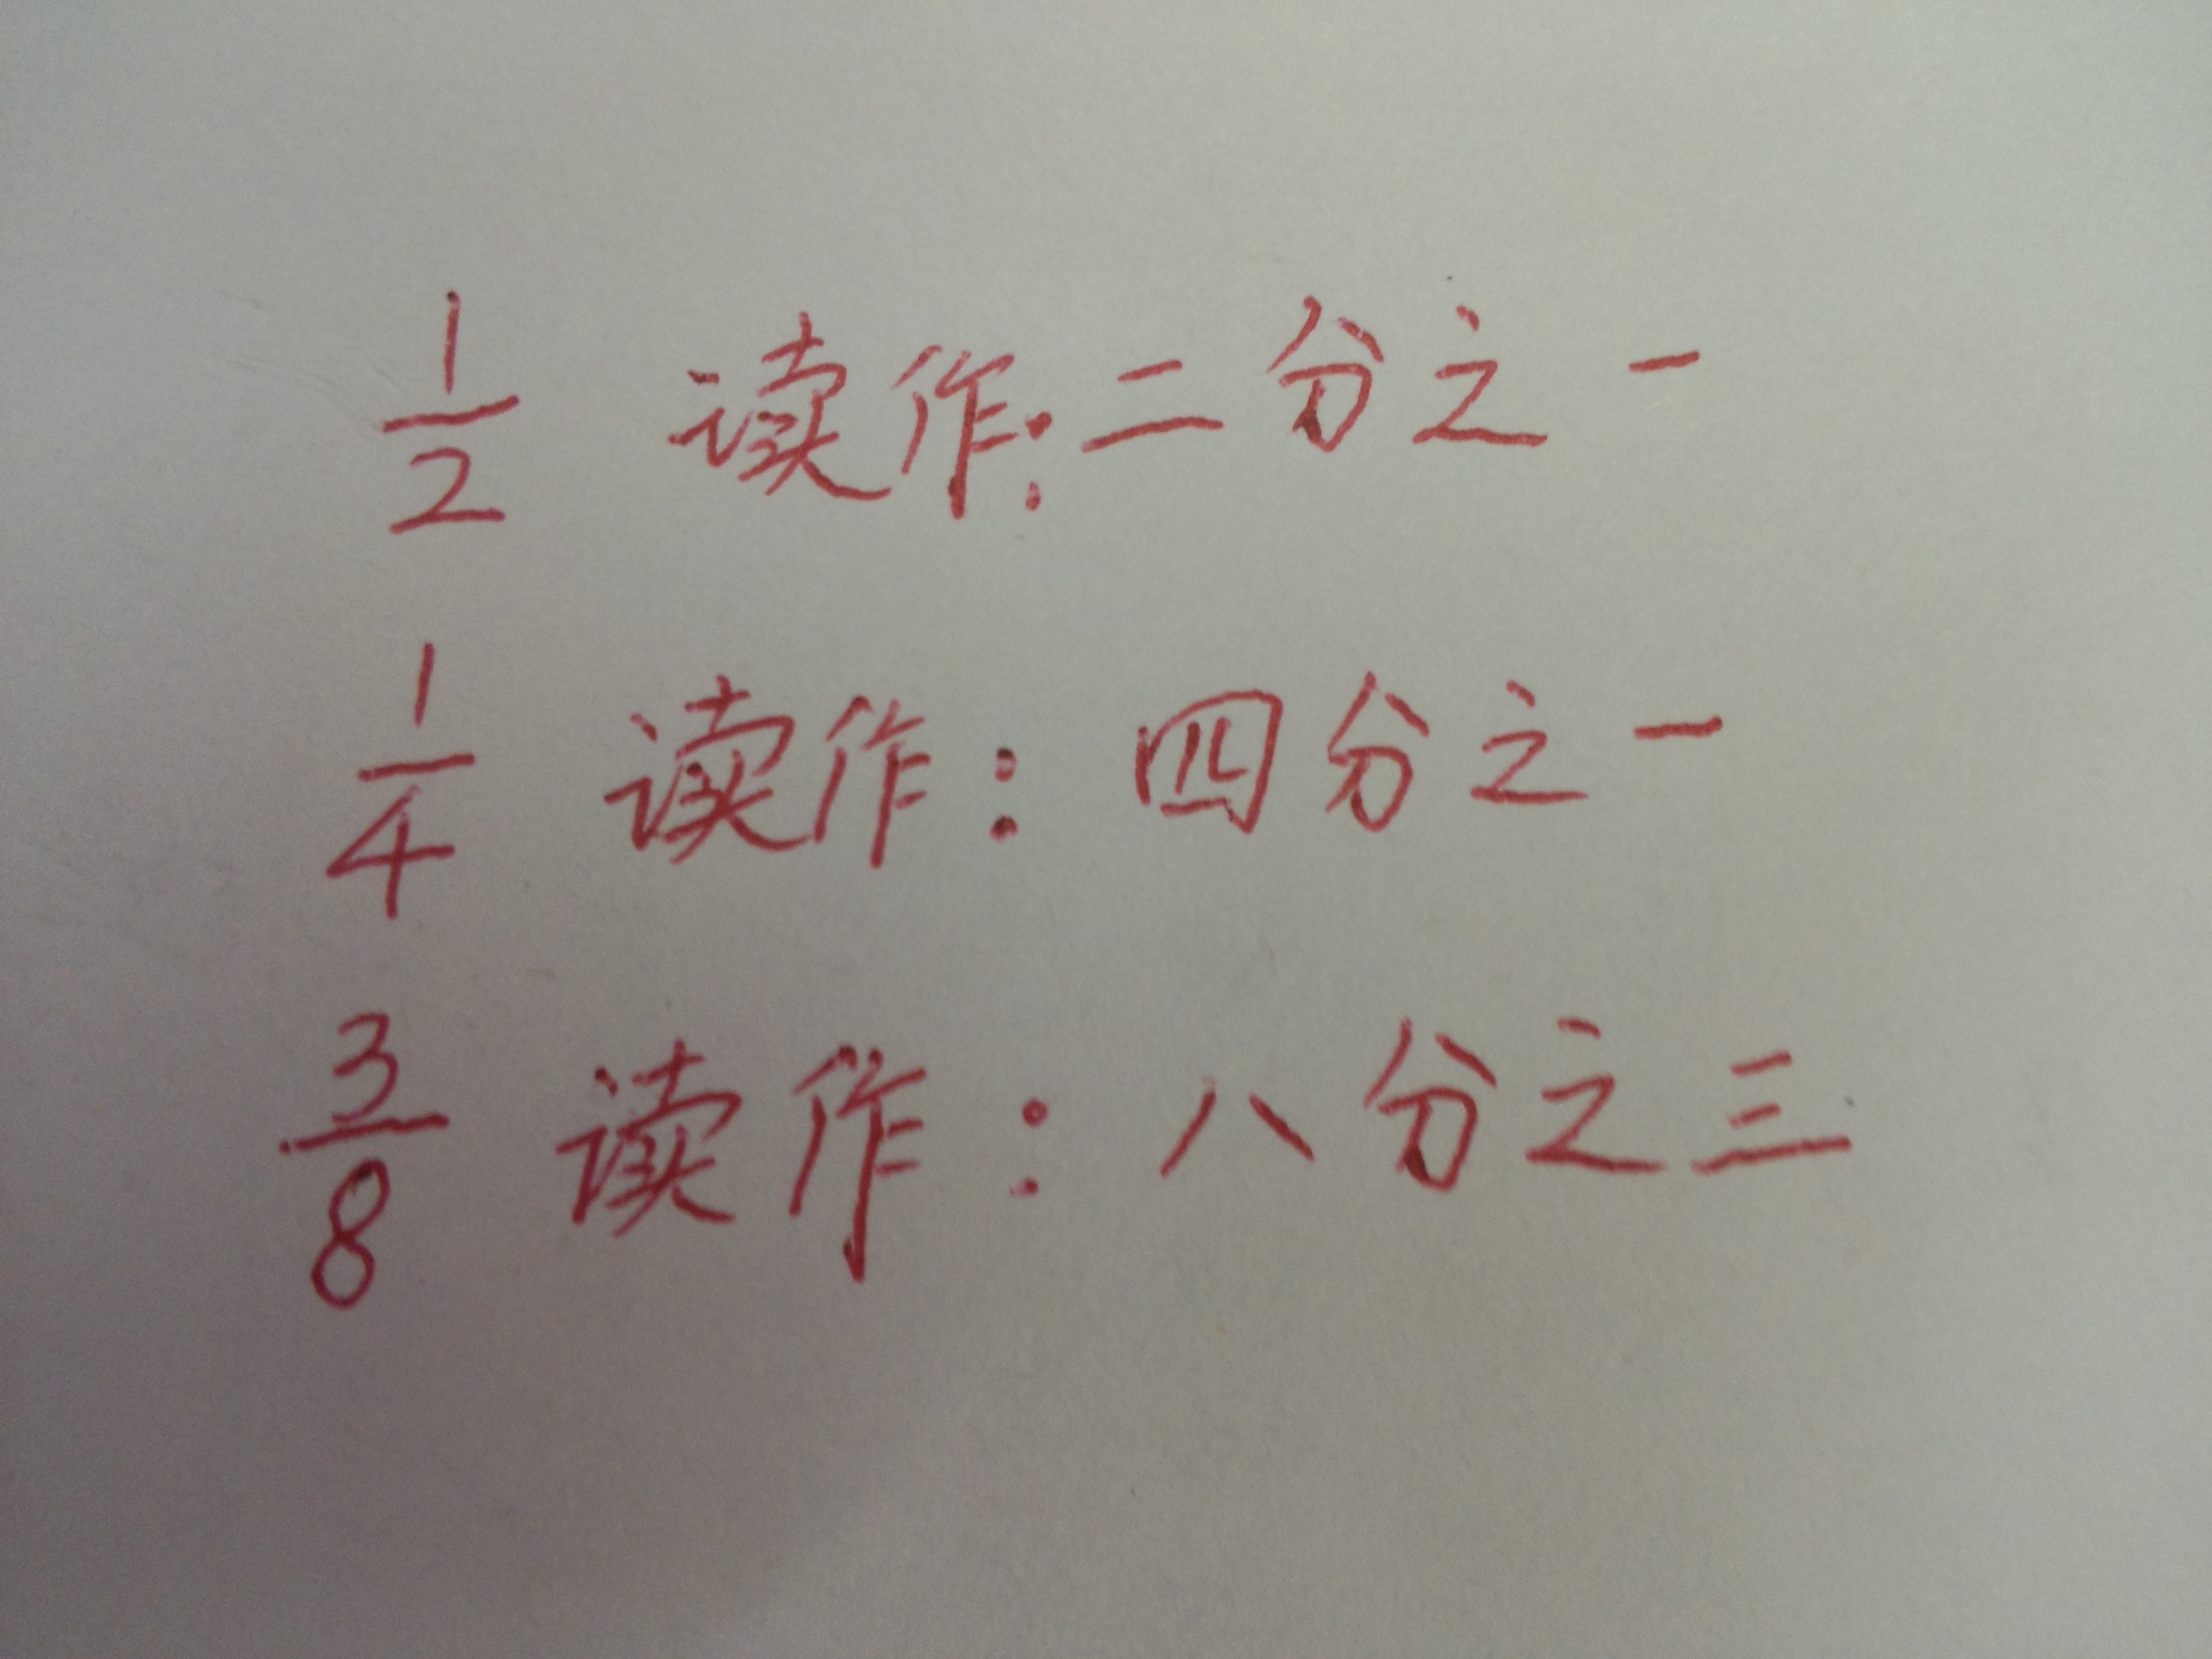 1/2 读作:二分之一
1/4 读作:四分之一
3/8 读作:八分之三